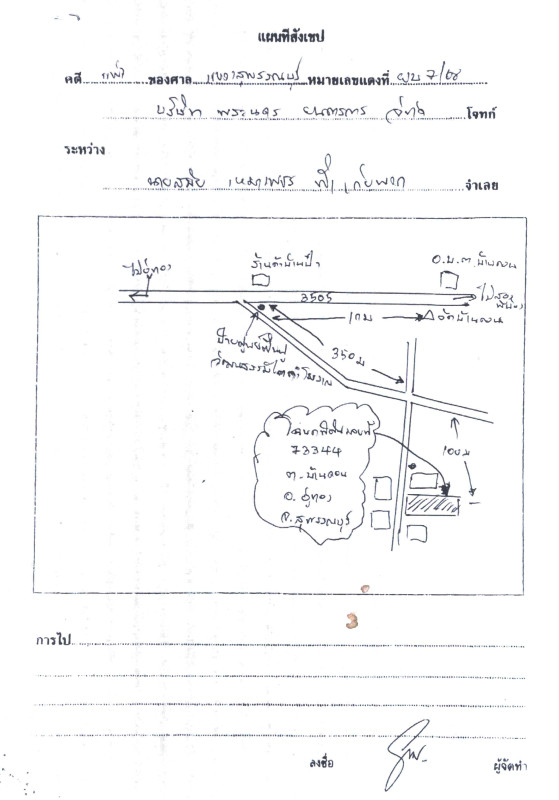 แผนที่สังเขป
คดี แพ่ง ของศาล แขวงสุพรรณบุรี หมายเลขแดงที่ ผบ 7/68
บริษัท พระนคร ยนตรการ จำกัด โจทก์
ระหว่าง
นายสมัย จำเลย
ไปอู่ทอง
ร้านค้า
อ.บ.ต. บ้านดอน
3505
ไปสองพี่น้อง
1 กม
วัดบ้านดอน
350 ม
ป้ายศูนย์ฟื้นฟู
วัฒนธรรมไต
โฉนดที่ดินเลขที่
73344
ต. บ้านดอน
อ. อู่ทอง
จ. สุพรรณบุรี
100 ม
3
การไป
ลงชื่อ ผู้จัดทำ